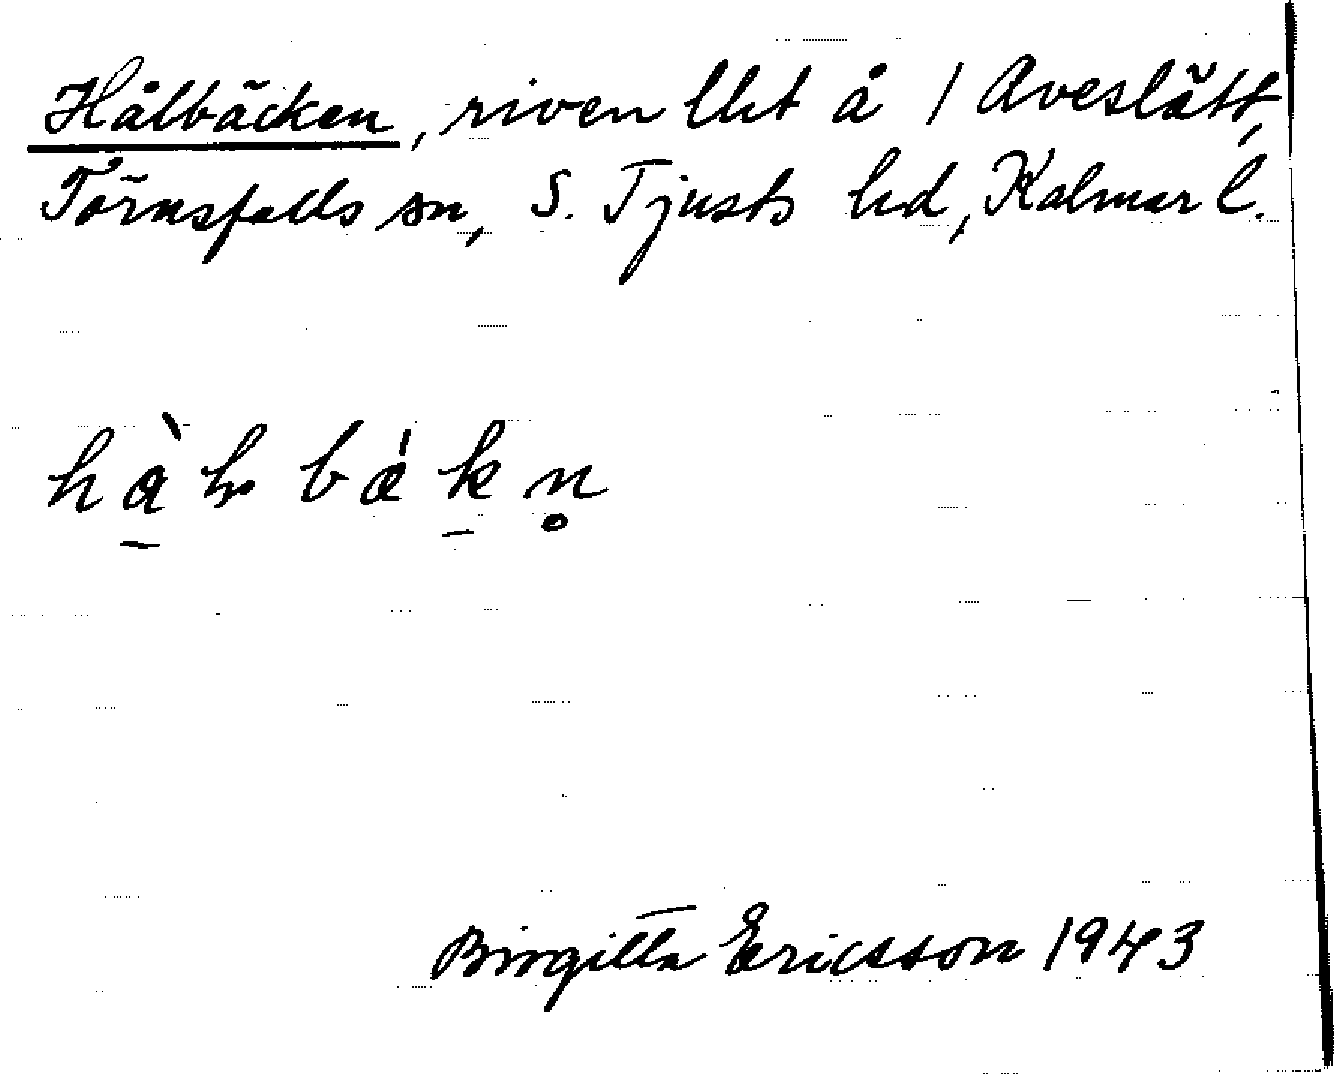 Hålbäcken, riven lht å 1 Aveslätt,
Törnsfalls sn, S. Tjusts hd, Kalmar l.
Birgitta Ericsson 1943